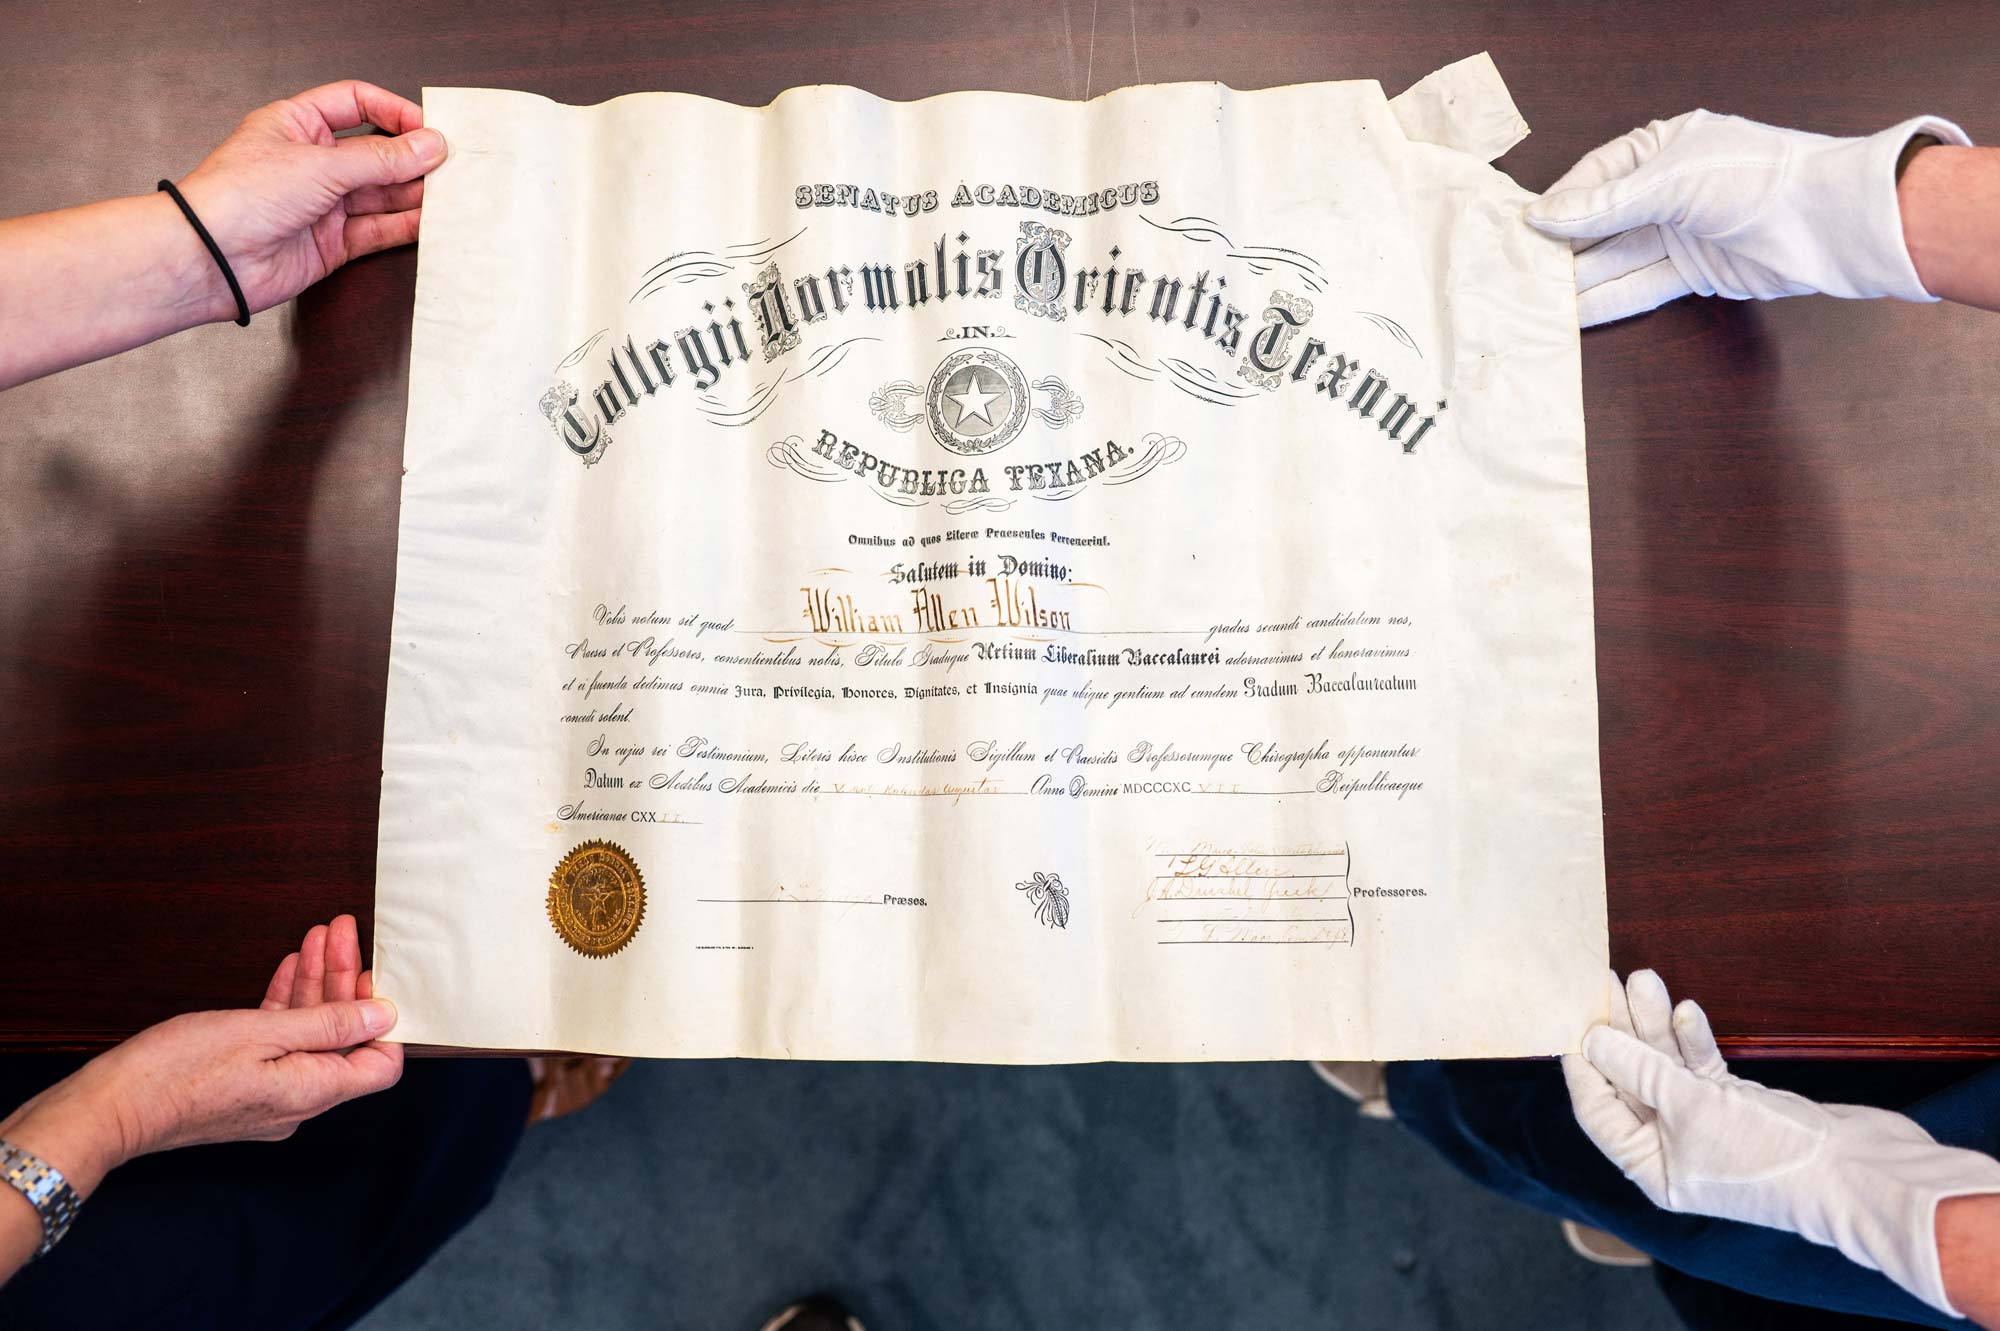 SENATUS ACADEMICUS
Collegii Normalis Orientis Texani
IN
REPUBLICA TEXANA.
Omnibus ad quos Literæ Praesentes Pervenerint.
Salutem in Domino:
Vobis notum sit quod William Allen Wilson gradus secundi candidatum nos,
Praeses et Professores, consentientibus nobis, Titulo Graduque Artium Liberalium Baccalaurei adornavimus et honoravimus:
et ei fruenda dedimus omnia Jura, Privilegia, Honores, Dignitates, et Insignia quae ubique gentium ad eundem Gradum Baccalaureatum
concedi solent.
In cujus rei Testimonium, Literis hisce Institutionis Sigillum et Praesidis Professorumque Chirographa apponuntur
Datum ex Aedibus Academicis die V ante Kalendas Augustas Anno Domini MDCCCXC VII Reipublicaeque
Americanae CXX II.
Præses.
Professores.